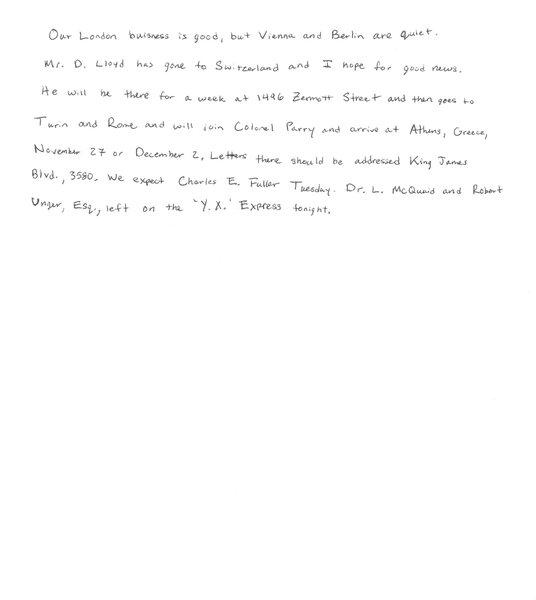 Our London buisness is good, but Vienna and Berlin are quiet.
Mr. D. Lloyd has gone to Switzerland and I hope for good news.
He will be there for a week at 1496 Zermott Street and then goes to
Turin and Rome and will join Colonel Parry and arrive at Athens, Greece,
November 27 or December 2. Letters there should be addressed King James
Blvd., 3580. We expect Charles E. Fuller Tuesday. Dr. L. McQuaid and Robert
Unger, Esq., left on the 'Y.X.' Express tonight.